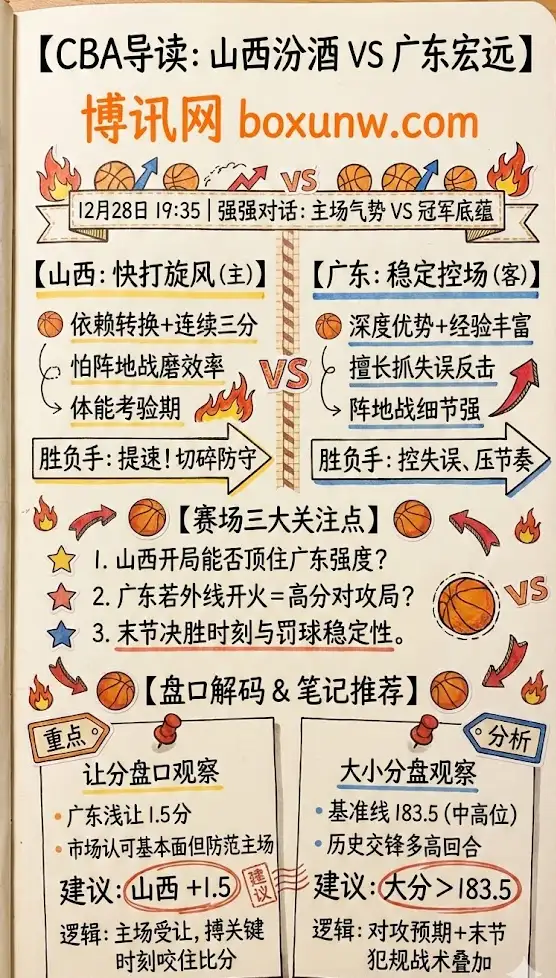 【CBA导读：山西汾酒 VS 广东宏远】
博讯网 boxunw.com
VS
12月28日 19:35 | 强强对话：主场气势 VS 冠军底蕴
【山西：快打旋风(主)】
依赖转换+连续三分
怕阵地战磨效率
体能考验期
胜负手：提速！切碎防守
VS
【广东：稳定控场(客)】
深度优势+经验丰富
擅长抓失误反击
阵地战细节强
胜负手：控失误、压节奏
【赛场三大关注点】
1. 山西开局能否顶住广东强度？
2. 广东若外线开火=高分对攻局？
3. 末节决胜时刻与罚球稳定性。
VS
【盘口解码 & 笔记推荐】
重点
让分盘口观察
• 广东浅让 1.5分
• 市场认可基本面但防范主场
建议：山西 +1.5
建议
逻辑：主场受让，搏关键
时刻咬住比分
分析
大小分盘观察
• 基准线 183.5 (中高位)
• 历史交锋多高回合
建议：大分＞183.5
逻辑：对攻预期+末节
犯规战术叠加